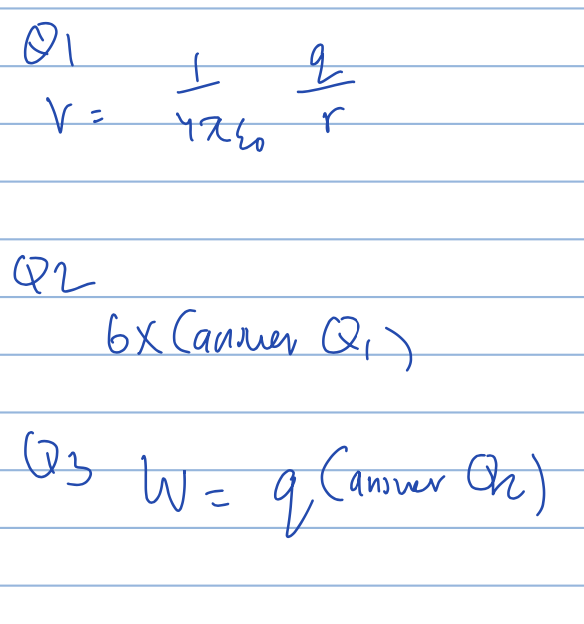 Q1
V = 1/4πε0 q/r
Q2
6x (answer Q1)
Q3 W = q (answer Q2)